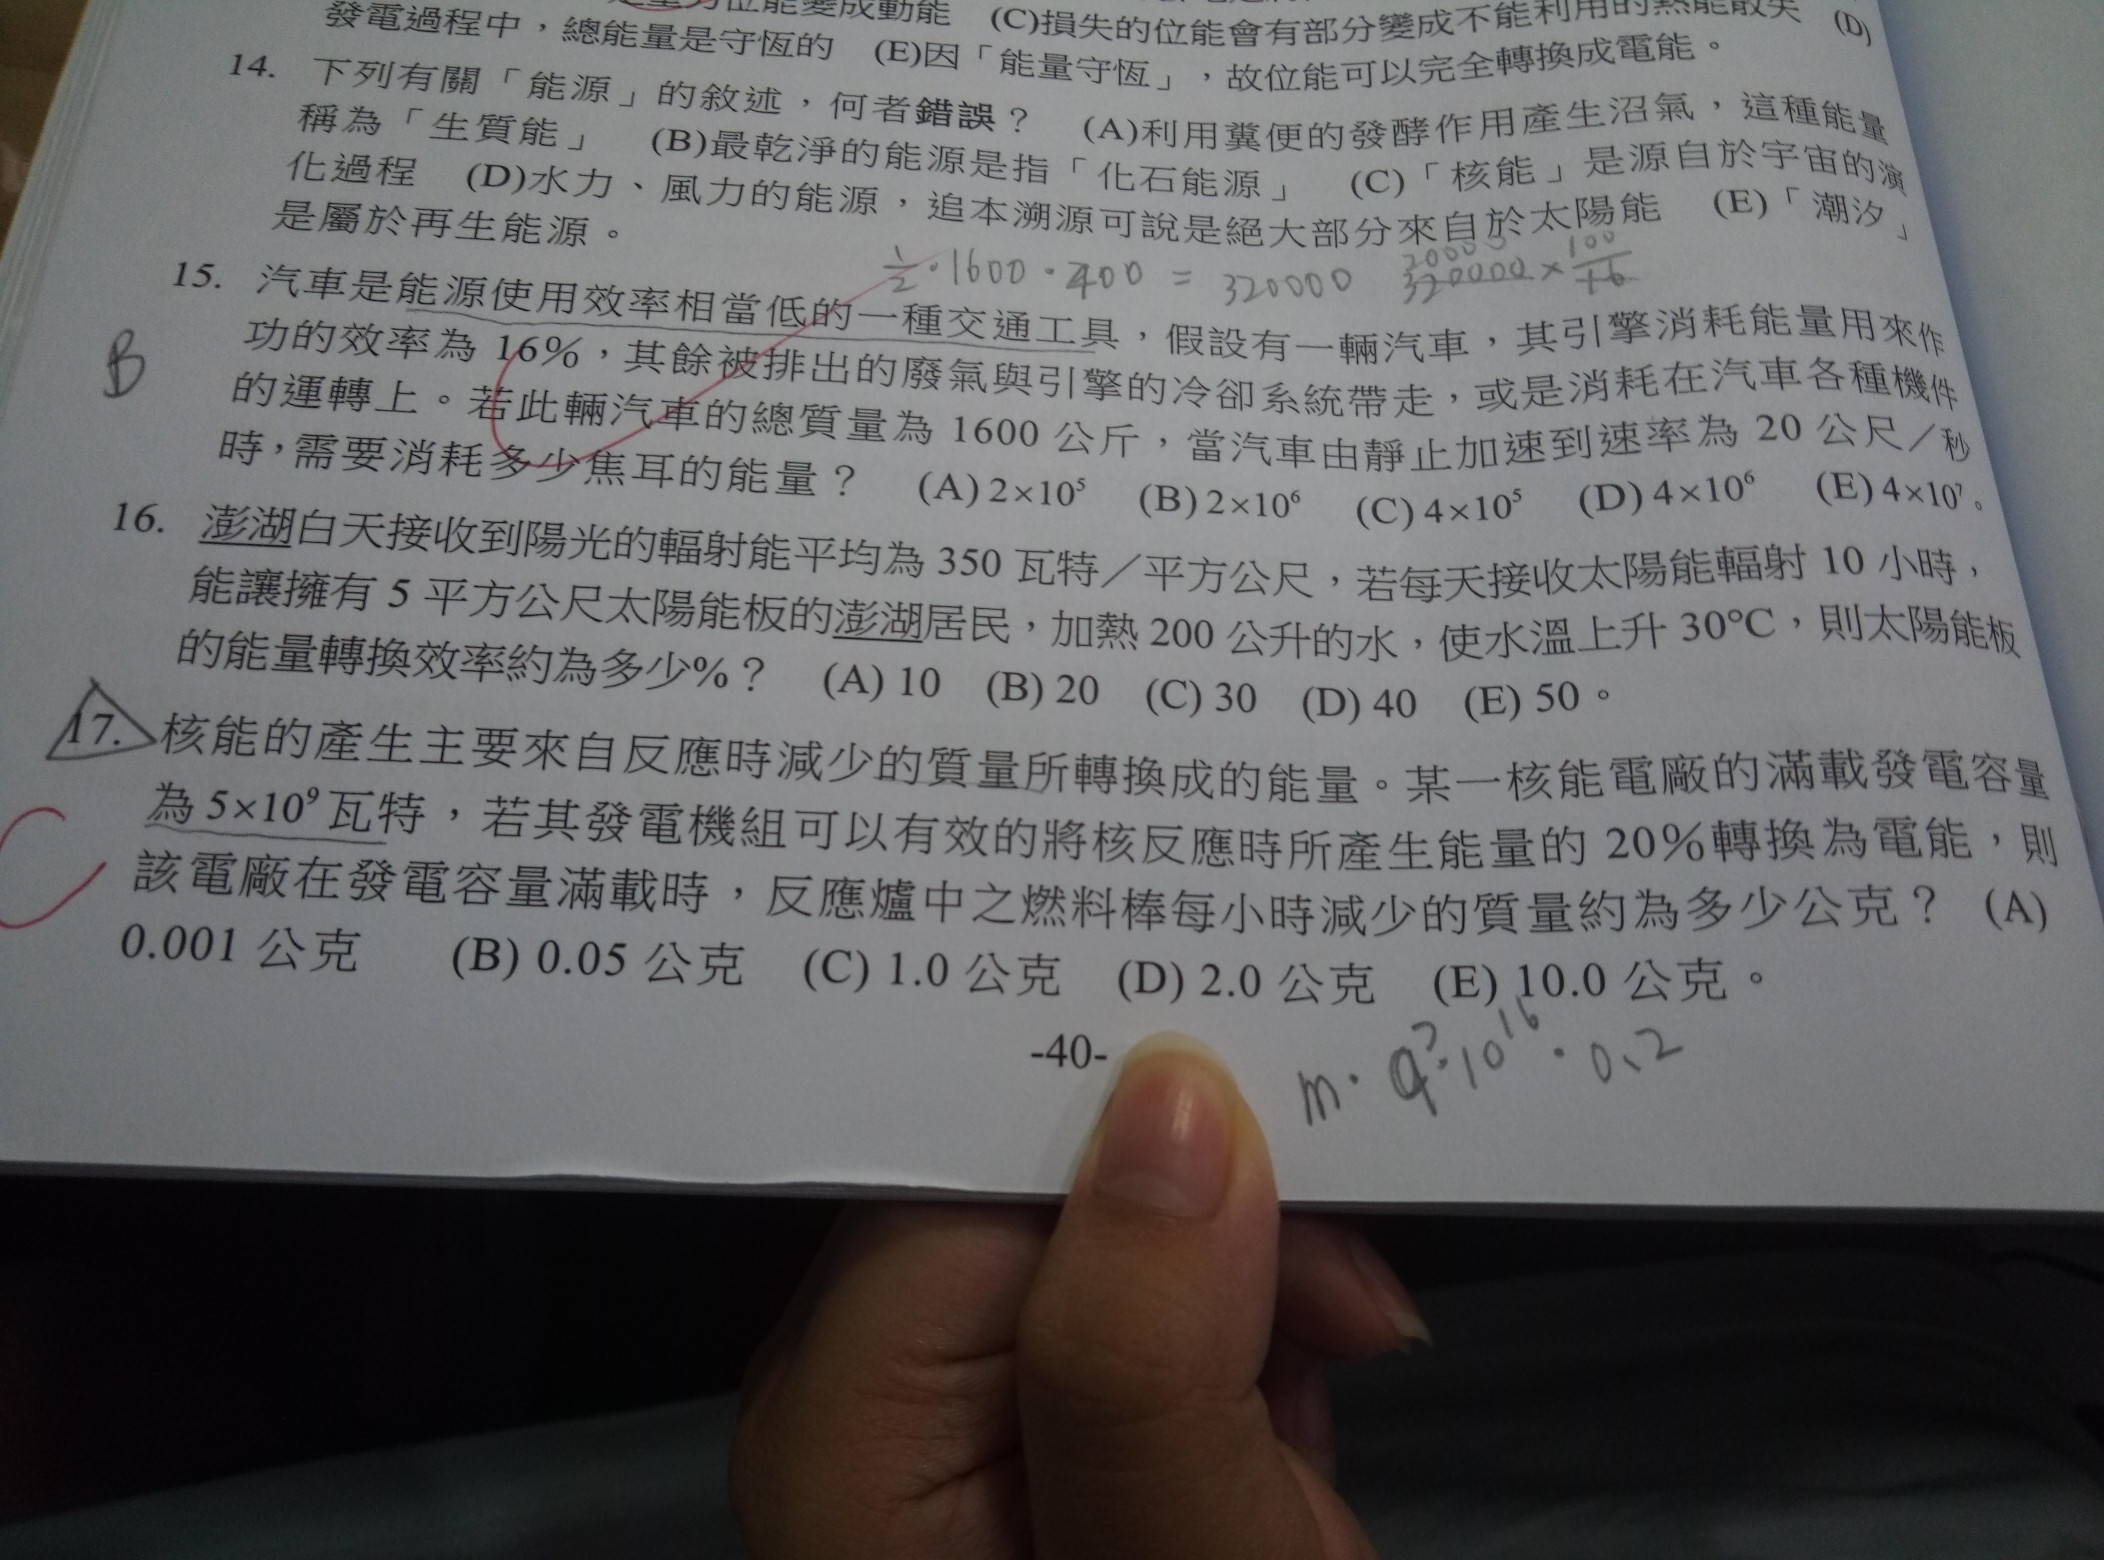 位能變成動能 (C)損失的位能會有部分變成不能利用的熱能散失 (D)
發電過程中，總能量是守恆的 (E)因「能量守恆」，故位能可以完全轉換成電能。
14. 下列有關「能源」的敘述，何者錯誤？ (A)利用糞便的發酵作用產生沼氣，這種能量
稱為「生質能」 (B)最乾淨的能源是指「化石能源」 (C)「核能」是源自於宇宙的演
化過程 (D)水力、風力的能源，追本溯源可說是絕大部分來自於太陽能 (E)「潮汐」
是屬於再生能源。
1/2·1600·400 = 320000 320000 × 100/16
20000
15. 汽車是能源使用效率相當低的一種交通工具，假設有一輛汽車，其引擎消耗能量用來作
B
功的效率為 16%，其餘被排出的廢氣與引擎的冷卻系統帶走，或是消耗在汽車各種機件
的運轉上。若此輛汽車的總質量為 1600 公斤，當汽車由靜止加速到速率為 20 公尺／秒
時，需要消耗多少焦耳的能量？ (A) 2×10⁵ (B) 2×10⁶ (C) 4×10⁵ (D) 4×10⁶ (E) 4×10⁷。
16. 澎湖白天接收到陽光的輻射能平均為 350 瓦特／平方公尺，若每天接收太陽能輻射 10 小時，
能讓擁有 5 平方公尺太陽能板的澎湖居民，加熱 200 公升的水，使水溫上升 30°C，則太陽能板
的能量轉換效率約為多少%？ (A) 10 (B) 20 (C) 30 (D) 40 (E) 50。
17. 核能的產生主要來自反應時減少的質量所轉換成的能量。某一核能電廠的滿載發電容量
為 5×10⁹ 瓦特，若其發電機組可以有效的將核反應時所產生能量的 20%轉換為電能，則
C
該電廠在發電容量滿載時，反應爐中之燃料棒每小時減少的質量約為多少公克？ (A)
0.001 公克 (B) 0.05 公克 (C) 1.0 公克 (D) 2.0 公克 (E) 10.0 公克。
-40-
m·9²·10¹⁶·0.2